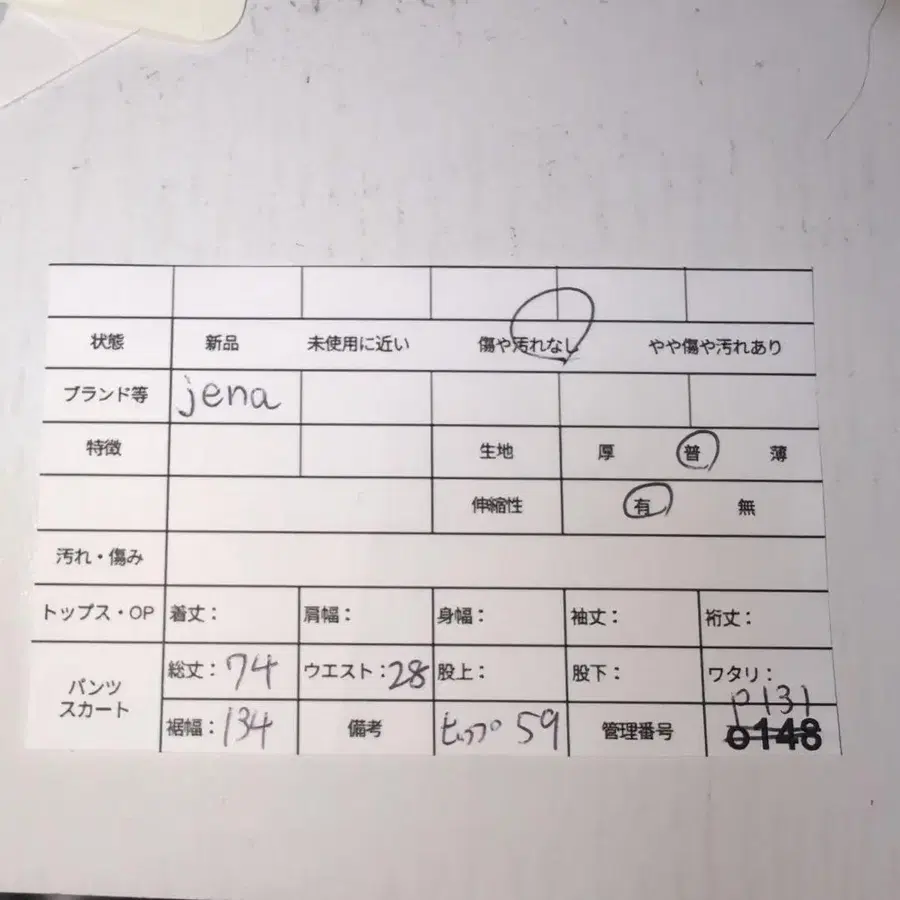 状態 新品 未使用に近い 傷や汚れなし やや傷や汚れあり
ブランド等 jena
特徴 生地 厚 普 薄
伸縮性 有 無
汚れ・傷み
トップス・OP 着丈: 肩幅: 身幅: 袖丈: 裄丈:
パンツ スカート 総丈:74 ウエスト:28 股上: 股下: ワタリ:
p131
裾幅:134 備考 ヒップ 59 管理番号 0148